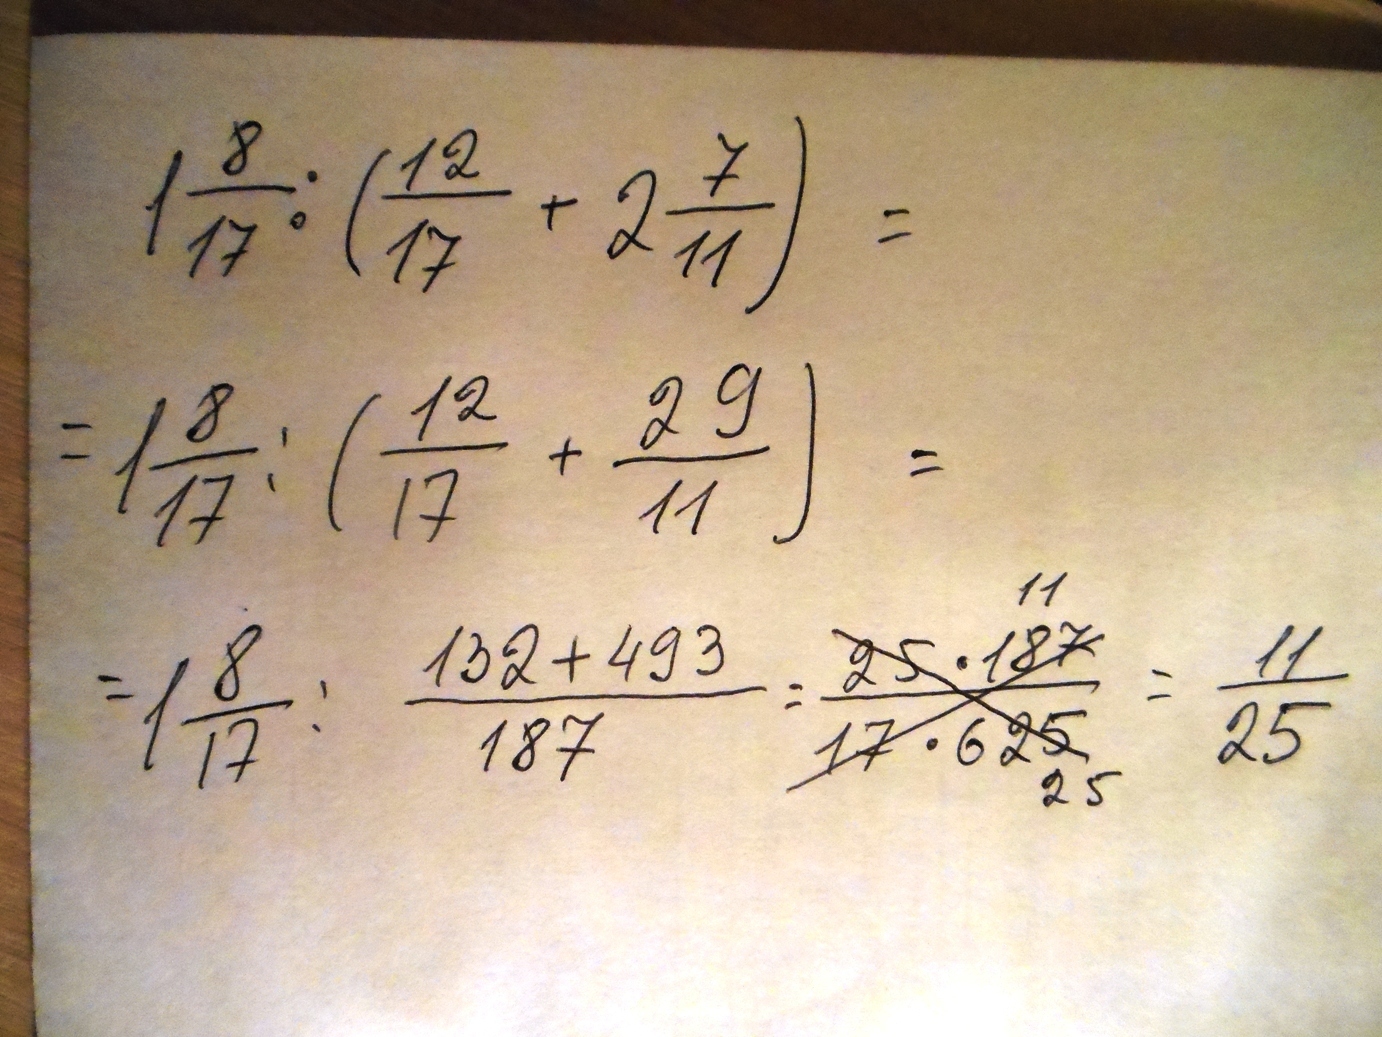 1 8/17 : (12/17 + 2 7/11) =
= 1 8/17 : (12/17 + 29/11) =
= 1 8/17 : (132+493)/187 = (25 · 187 11)/(17 · 625 25) = 11/25